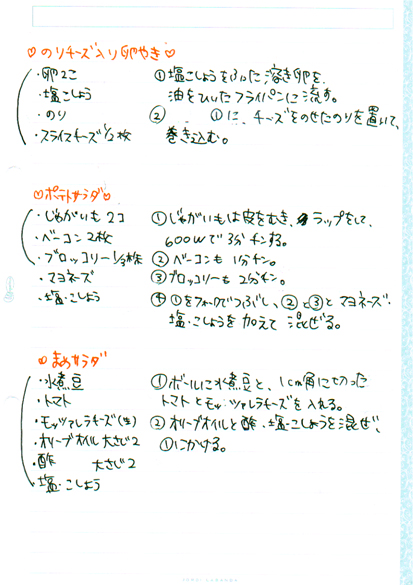 ♡のりチーズ入り卵やき♡
・卵2こ
・塩こしょう
・のり
・スライスチーズ1/2枚
①塩こしょうをふった溶き卵を
油をひいたフライパンに流す。
② ①に、チーズをのせたのりを置いて、
巻き込む。
♡ポテトサラダ♡
・じゃがいも2コ
・ベーコン2枚
・ブロッコリー1/3株
・マヨネーズ
・塩・こしょう
①じゃがいもは皮をむき、ラップをして、
600Wで3分チンする。
②ベーコンも1分チン。
③ブロッコリーも2分チン。
④①をフォークでつぶし、②と③とマヨネーズ・
塩・こしょうを加えて混ぜる。
♡まめサラダ
・水煮豆
・トマト
・モッツァレラチーズ(生)
・オリーブオイル大さじ2
・酢 大さじ2
・塩・こしょう
①ボールに水煮豆と、1cm角に切った
トマトとモッツァレラチーズを入れる。
②オリーブオイルと酢・塩・こしょうを混ぜ、
①にかける。